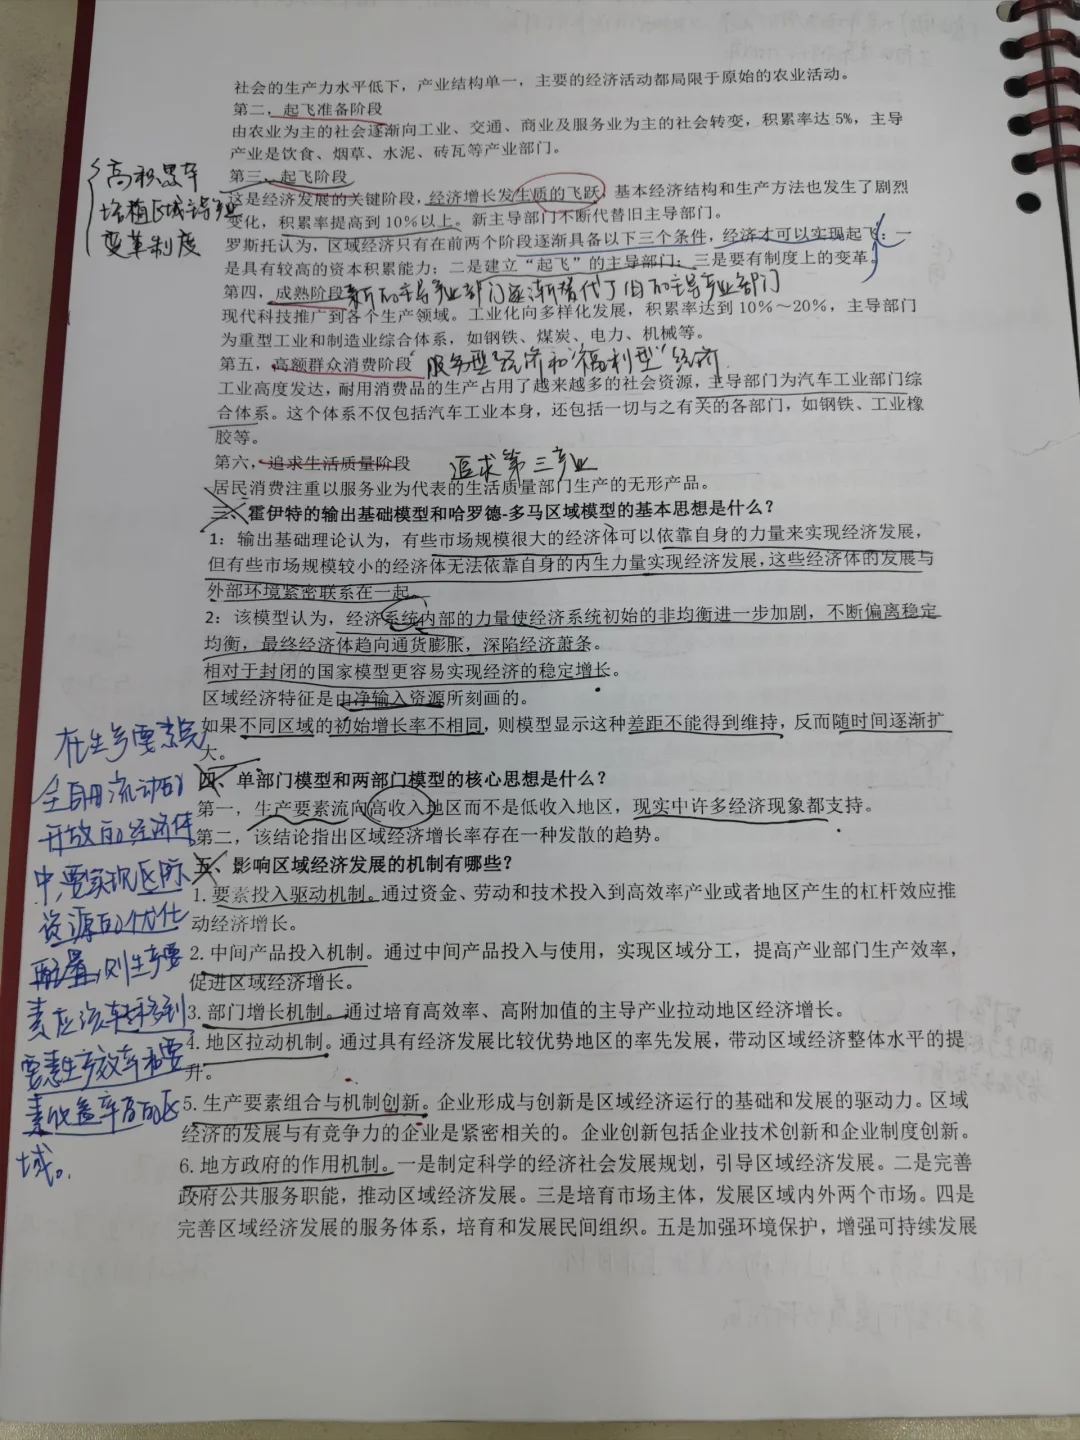 社会的生产力水平低下，产业结构单一，主要的经济活动都局限于原始的农业活动。
第二，起飞准备阶段
由农业为主的社会逐渐向工业、交通、商业及服务业为主的社会转变，积累率达 5%，主导
产业是饮食、烟草、水泥、砖瓦等产业部门。
第三，起飞阶段
高积累率
培植区域主导产业
变革制度
这是经济发展的关键阶段，经济增长发生质的飞跃，基本经济结构和生产方法也发生了剧烈
变化，积累率提高到 10%以上。新主导部门不断代替旧主导部门。
罗斯托认为，区域经济只有在前两个阶段逐渐具备以下三个条件，经济才可以实现起飞：一
是具有较高的资本积累能力；二是建立“起飞”的主导部门；三是要有制度上的变革。
第四，成熟阶段 新的主导产业部门逐渐替代了旧的主导产业部门
现代科技推广到各个生产领域。工业化向多样化发展，积累率达到 10%～20%，主导部门
为重型工业和制造业综合体系，如钢铁、煤炭、电力、机械等。
第五，高额群众消费阶段 服务型经济和“福利型”经济
工业高度发达，耐用消费品的生产占用了越来越多的社会资源，主导部门为汽车工业部门综
合体系。这个体系不仅包括汽车工业本身，还包括一切与之有关的各部门，如钢铁、工业橡
胶等。
第六，追求生活质量阶段 追求第三产业
居民消费注重以服务业为代表的生活质量部门生产的无形产品。
三、霍伊特的输出基础模型和哈罗德-多马区域模型的基本思想是什么？
1：输出基础理论认为，有些市场规模很大的经济体可以依靠自身的力量来实现经济发展，
但有些市场规模较小的经济体无法依靠自身的内生力量实现经济发展，这些经济体的发展与
外部环境紧密联系在一起。
2：该模型认为，经济系统内部的力量使经济系统初始的非均衡进一步加剧，不断偏离稳定
均衡，最终经济体趋向通货膨胀，深陷经济萧条。
相对于封闭的国家模型更容易实现经济的稳定增长。
区域经济特征是由净输入资源所刻画的。
如果不同区域的初始增长率不相同，则模型显示这种差距不能得到维持，反而随时间逐渐扩
大。
四、单部门模型和两部门模型的核心思想是什么？
第一，生产要素流向高收入地区而不是低收入地区，现实中许多经济现象都支持。
第二，该结论指出区域经济增长率存在一种发散的趋势。
五、影响区域经济发展的机制有哪些？
1.要素投入驱动机制。通过资金、劳动和技术投入到高效率产业或者地区产生的杠杆效应推
动经济增长。
2.中间产品投入机制。通过中间产品投入与使用，实现区域分工，提高产业部门生产效率，
促进区域经济增长。
3.部门增长机制。通过培育高效率、高附加值的主导产业拉动地区经济增长。
4.地区拉动机制。通过具有经济发展比较优势地区的率先发展，带动区域经济整体水平的提
升。
5.生产要素组合与机制创新。企业形成与创新是区域经济运行的基础和发展的驱动力。区域
经济的发展与有竞争力的企业是紧密相关的。企业创新包括企业技术创新和企业制度创新。
6.地方政府的作用机制。一是制定科学的经济社会发展规划，引导区域经济发展。二是完善
政府公共服务职能，推动区域经济发展。三是培育市场主体，发展区域内外两个市场。四是
完善区域经济发展的服务体系，培育和发展民间组织。五是加强环境保护，增强可持续发展
在生产要素完
全自由流动的
开放的经济体
中，要实现区际
资源的优化
配置，则生产要
素应该转移到
要素生产效率和要
素收益率高的区
域。